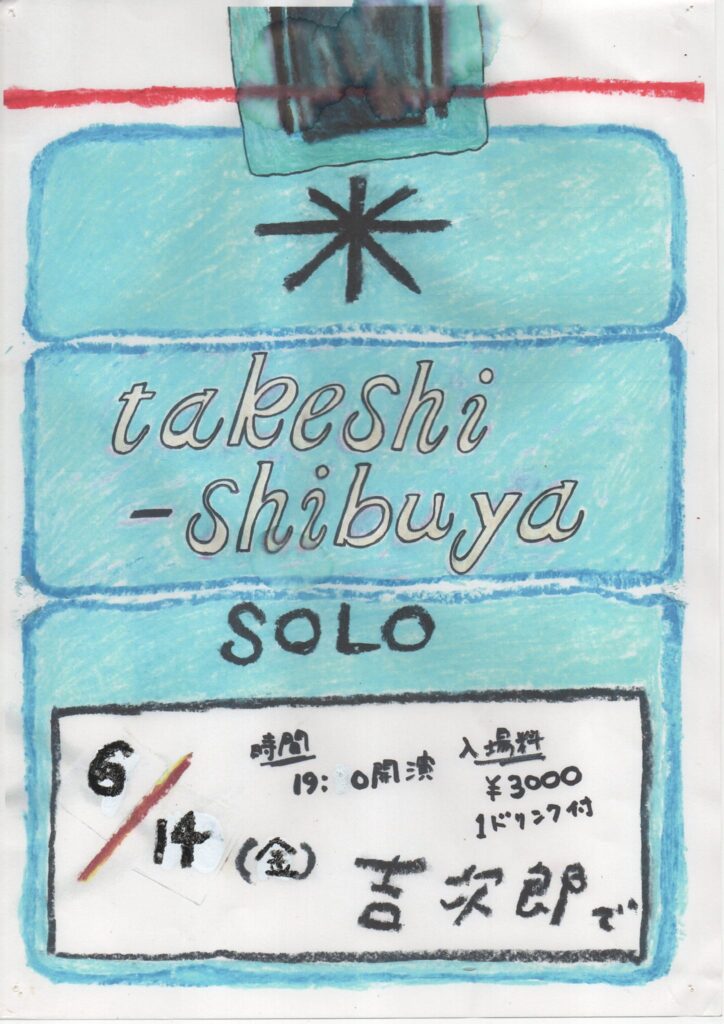 takeshi
-shibuya
SOLO
6/14(金)
時間
19: 0開演
入場料
¥3000
1ドリンク付
吉次郎で